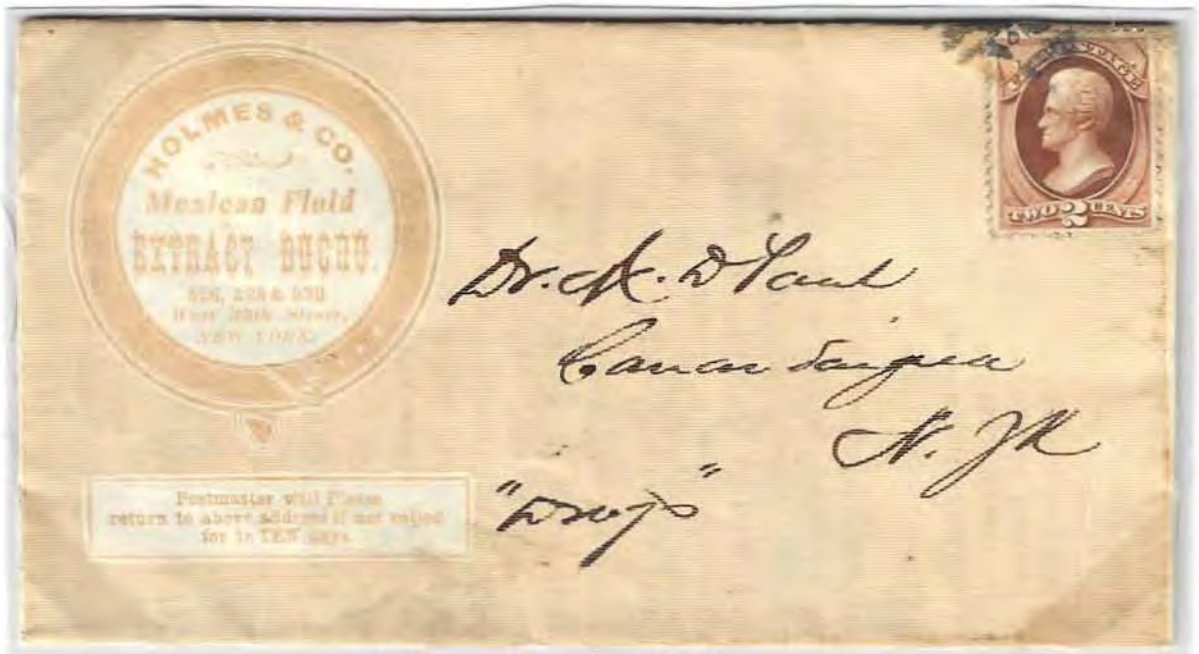 HOLMES & CO.
Mexican Fluid
EXTRACT BUCHU.
West Street,
NEW YORK.
Postmaster will Please
return to above address if not called
for in TEN days.
POSTAGE
TWO 2 CENTS
Dr. D
Canandaigua
N. Yk
"Drugs"